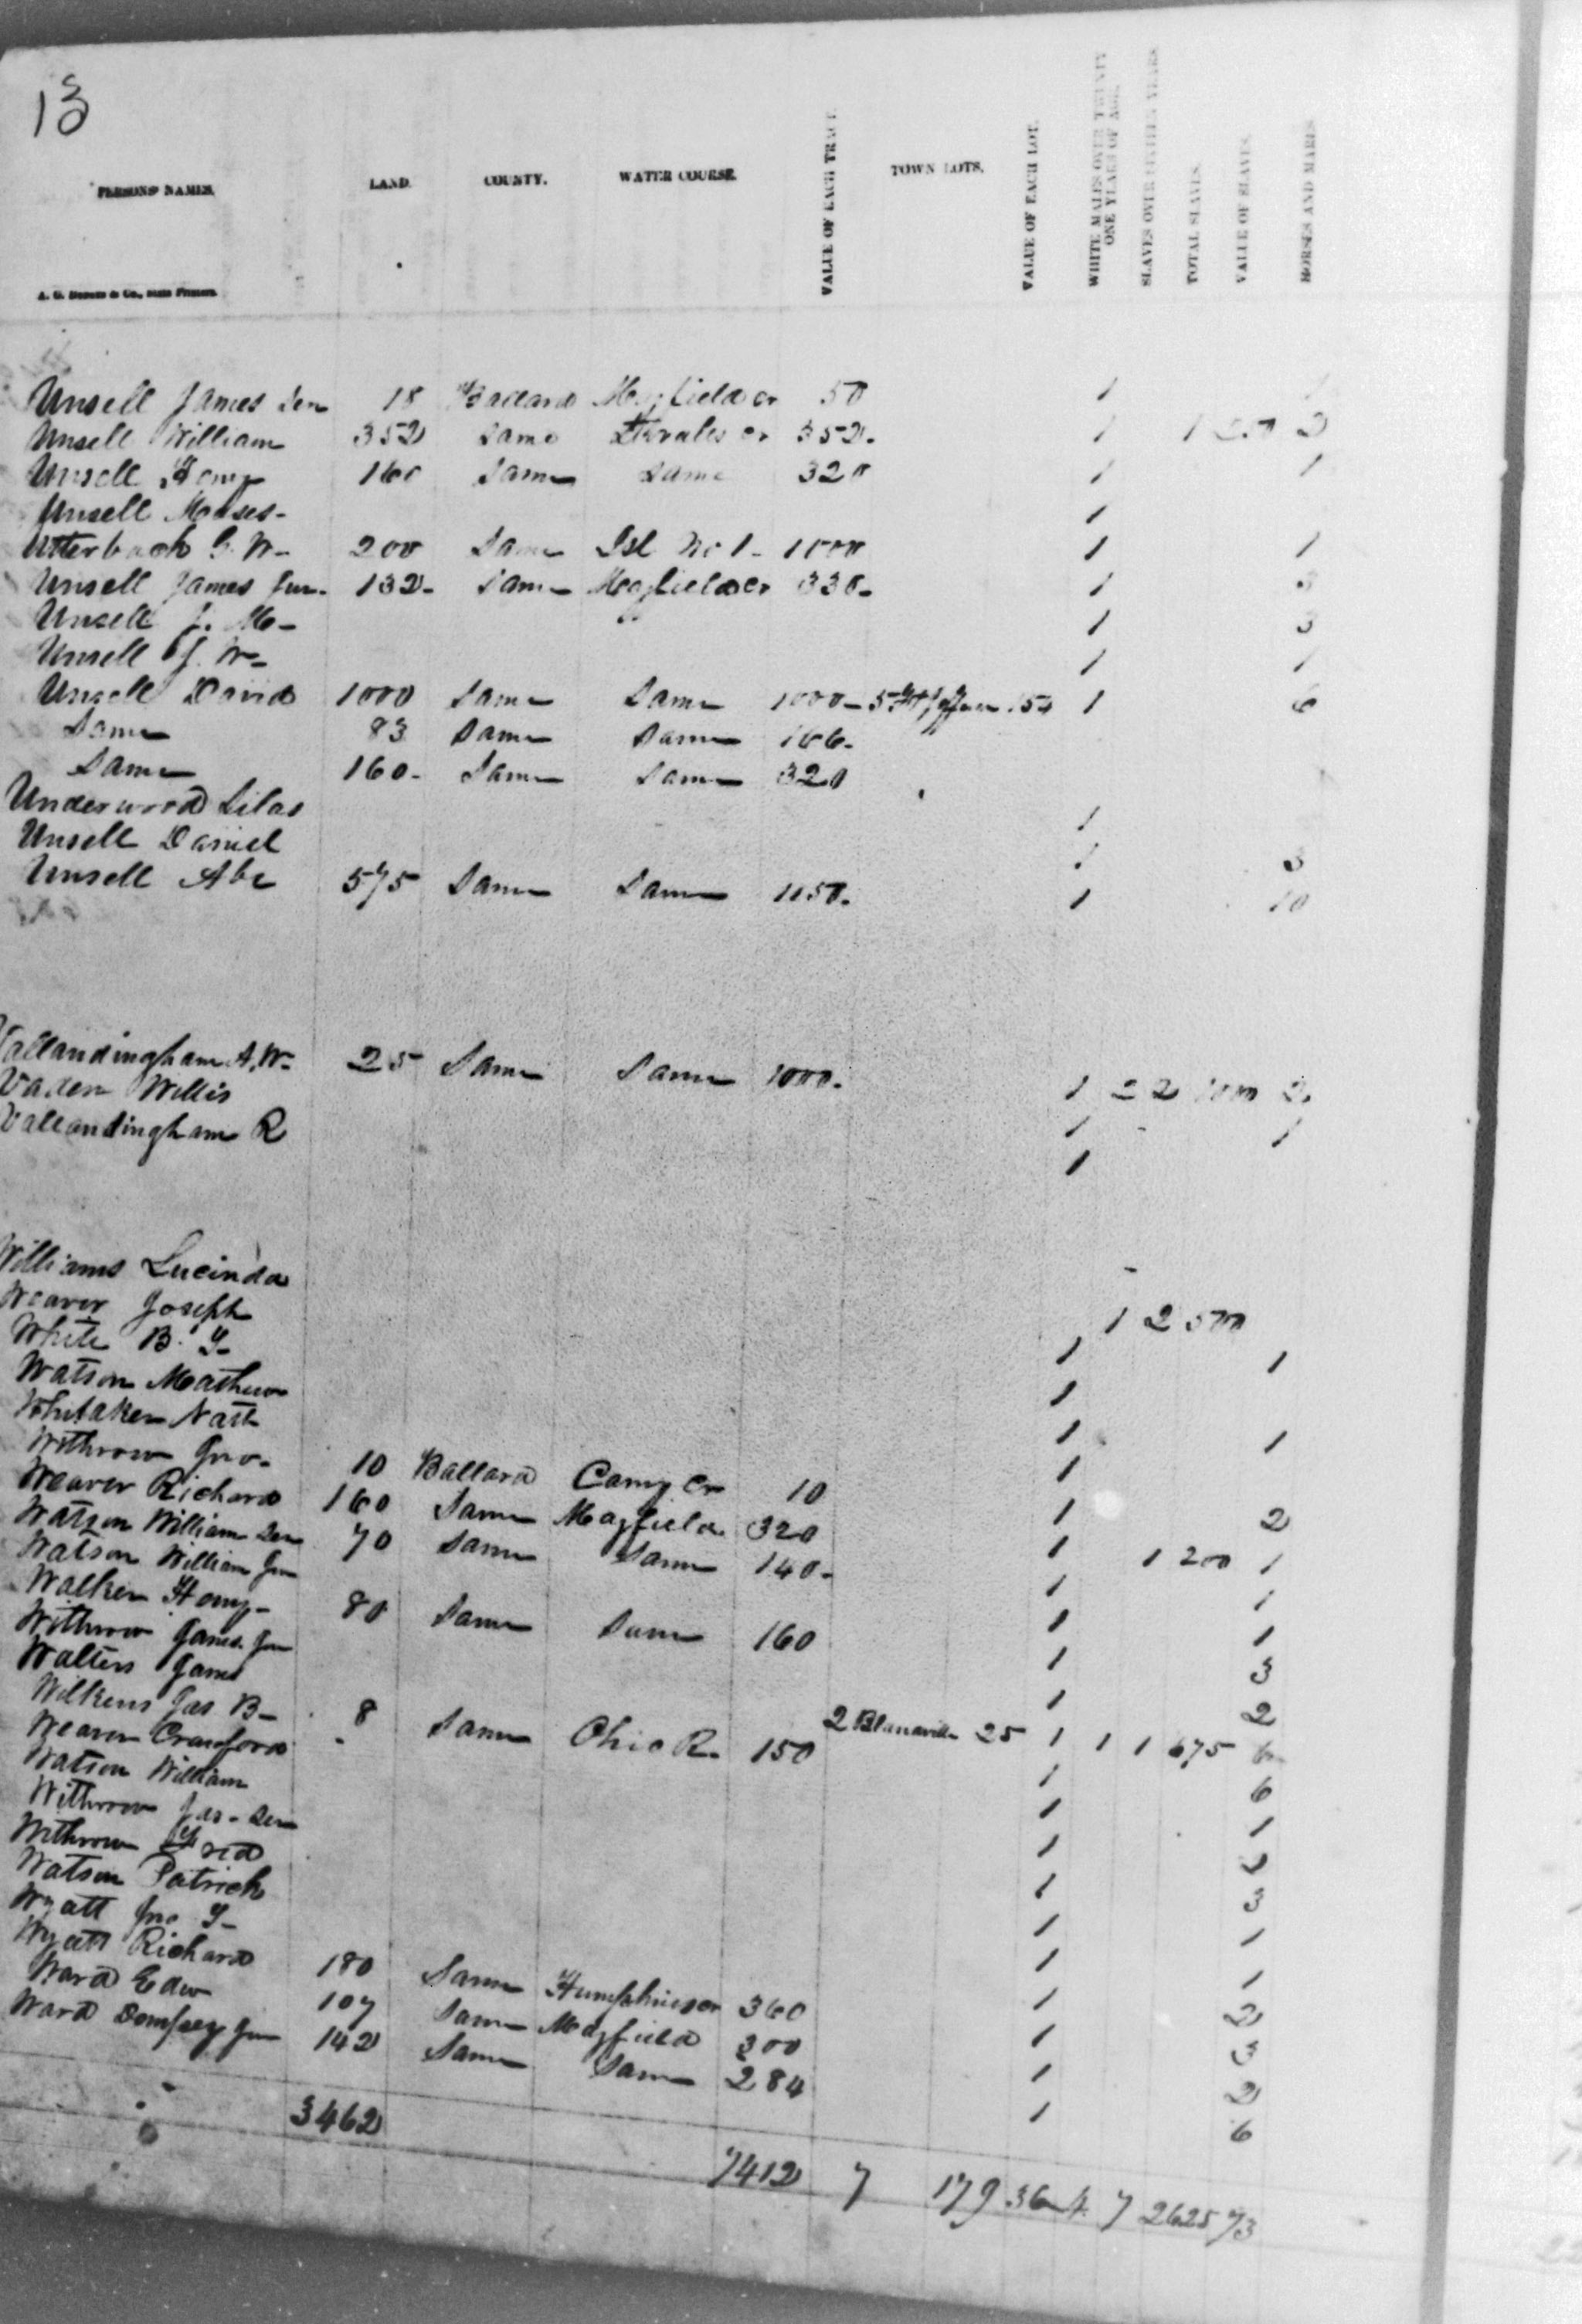 13
PERSONS' NAMES. LAND. COUNTY. WATER COURSE. VALUE OF EACH TRACT. TOWN LOTS. VALUE OF EACH LOT. WHITE MALES OVER TWENTY ONE YEARS OF AGE. SLAVES OVER SIXTEEN YEARS TOTAL SLAVES. VALUE OF SLAVES. HORSES AND MARES.
A. G. & Co., State Printers.
Unsell James Sen 18 Ballard Mayfield cr 50 1
Unsell William 352 Same cr 352- 1 1 250 2
Unsell Henry 160 Same Same 320 1 1
Unsell Moses- 1
Utterback G. W- 200 Same Isl No 1- 1000 1 1
Unsell James Jun- 132- Same Mayfield cr 330- 1 3
Unsell J. Mc- 1 3
Unsell J. W- 1 1
Unsell David 1000 Same Same 1000- 5 Ft Jefferson 154 1 6
Same 83 Same Same 166-
Same 160- Same Same 320
Underwood Silas 1
Unsell Daniel 1 3
Unsell Abe 575 Same Same 1150- 1 10
Vallandingham A. W- 25 Same Same 1000- 1 2 2 1000 2
Vaden Willis 1 1
Vallandingham R 1
Williams Lucinda - 1 2 500
Weaver Joseph 1 1
White B. Y- 1
Watson Mathew 1 1
Whitaker Nath 1
Withrow Jno- 10 Ballard Camp Cr 10 1 2
Weaver Richard 160 Same Mayfield 320 1 1 200 1
Watson William Sen 70 Same Same 140- 1 1
Watson William Jun 1 1
Walker Henry- 80 Same Same 160 1 3
Withrow James Jun 1 2
Walters James
Wilkens Jas B- 8 Same Ohio R. 150 2 Blanaville 25 1 1 1 675 6
Weaver Crawford - 1 6
Watson William 1 1
Withrow Jas- Sen 1
Withrow Fred 1 3
Watson Patrick 1 1
Wyatt Jno Y- 1 1
Wyatt Richard 180 Same Humphries cr 360 1 2
Ward Edw 107 Same Mayfield 300 1 3
Ward Dempsey Jun 142 Same Same 284 1 2
1 6
3462 7412 7 179 36 4 7 2625 73